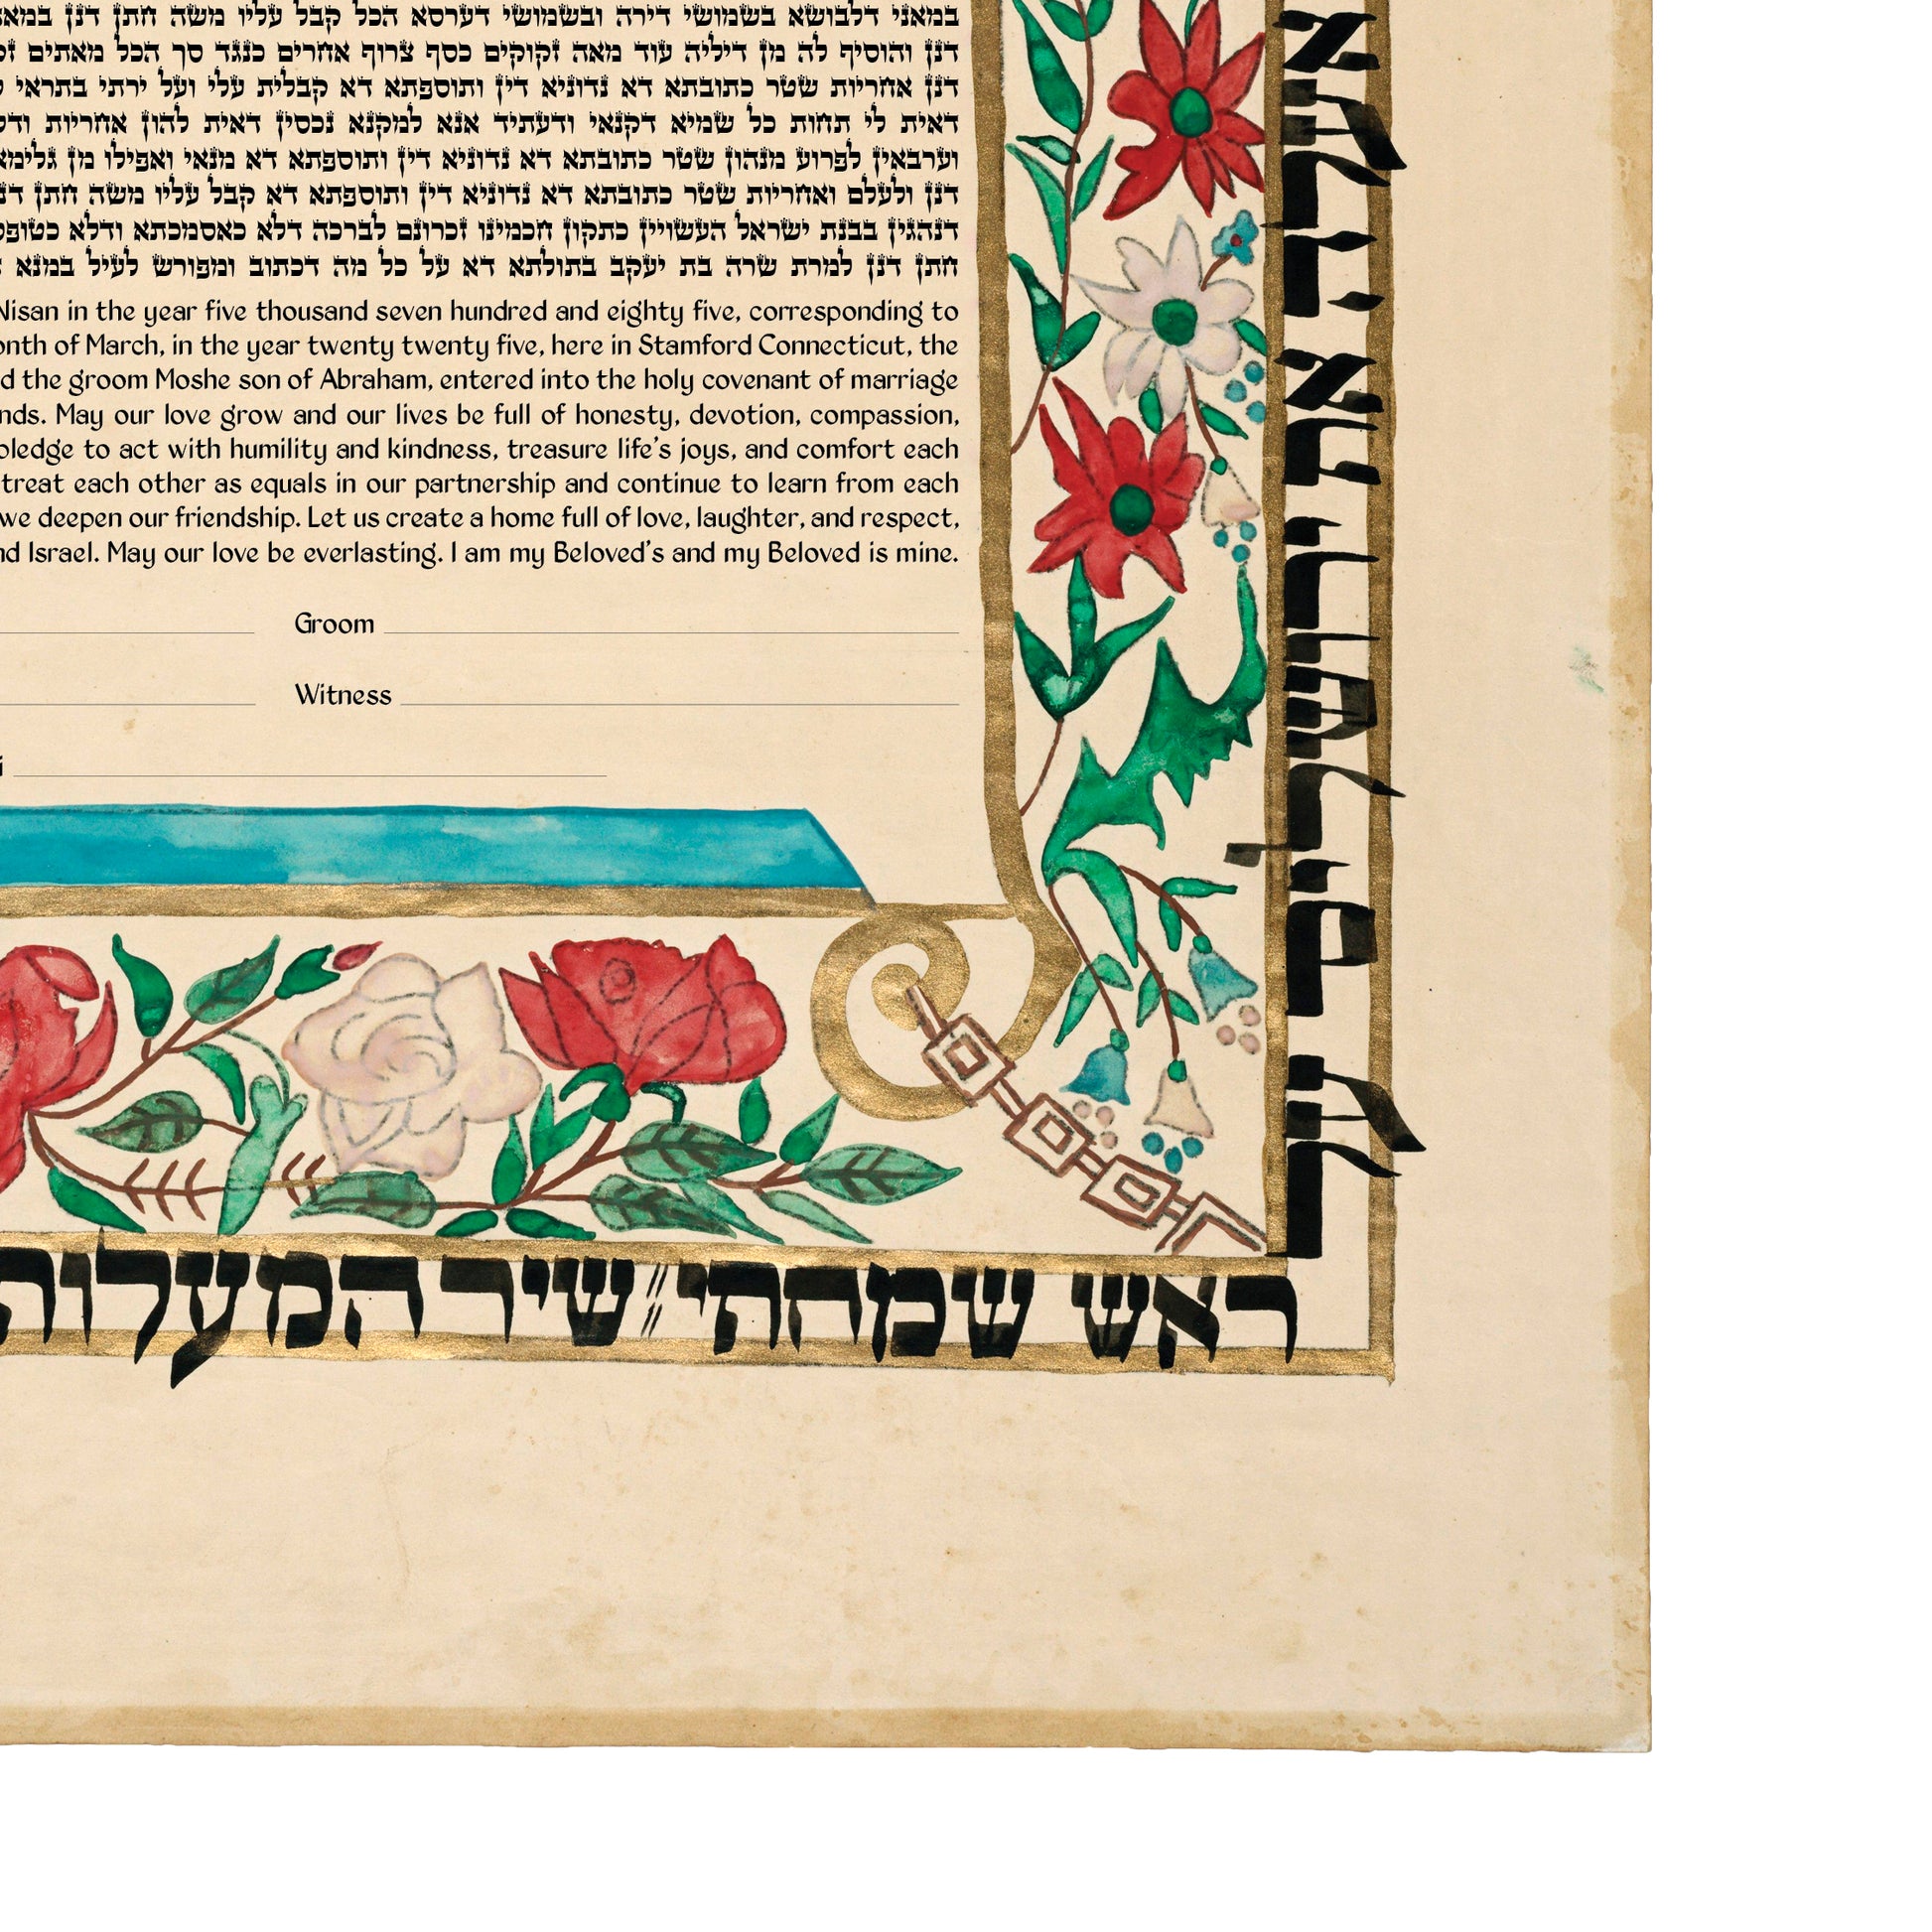 במאני דלבושא בשמושי דירה ובשמושי דערסא הכל קבל עליו משה חתן דנן
דנן והוסיף לה מן דיליה עוד מאה זקוקים כסף צרוף אחרים כנגד סך הכל מאתים
דנן אחריות שטר כתובתא דא נדוניא דין ותוספתא דא קבלית עלי ועל ירתי בתראי
דאית לי תחות כל שמיא דקנאי ודעתיד אנא למקנא נכסין דאית להון אחריות
וערבאין לפרוע מנהון שטר כתובתא דא נדוניא דין ותוספתא דא מנאי ואפילו מן
דנן ולעלם ואחריות שטר כתובתא דא נדוניא דין ותוספתא דא קבל עליו משה חתן
דנהגין בבנת ישראל העשויין כתקון חכמינו זכרונם לברכה דלא כאסמכתא ודלא
חתן דנן למרת שרה בת יעקב בתולתא דא על כל מה דכתוב ומפורש לעיל במנא
Nisan in the year five thousand seven hundred and eighty five, corresponding to
onth of March, in the year twenty twenty five, here in Stamford Connecticut, the
d the groom Moshe son of Abraham, entered into the holy covenant of marriage
nds. May our love grow and our lives be full of honesty, devotion, compassion,
pledge to act with humility and kindness, treasure life's joys, and comfort each
treat each other as equals in our partnership and continue to learn from each
we deepen our friendship. Let us create a home full of love, laughter, and respect,
nd Israel. May our love be everlasting. I am my Beloved's and my Beloved is mine.
Groom
Witness
אעלה את ירושלים על
ראש שמחתי // שיר המעלות